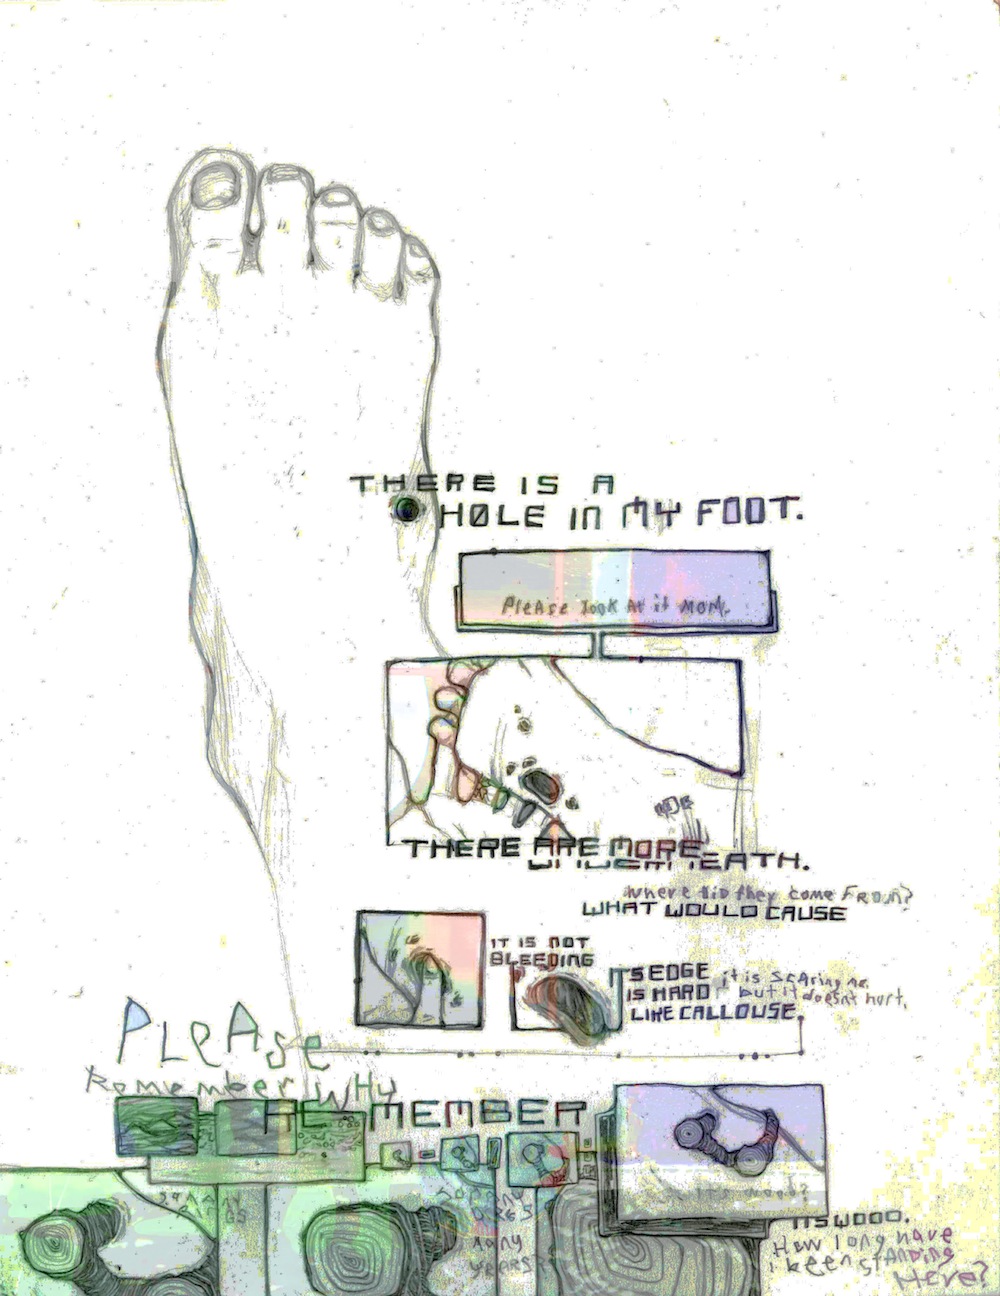 THERE IS A
HOLE IN MY FOOT.
PLeAse look At it MOM.
THERE ARE MORE
UNDERNEATH.
where did they come FROM?
WHAT WOULD CAUSE
IT IS NOT
BLEEDING
ITS EDGE
IS HARD
LIKE CALLOUSE.
it is scaring me.
but it doesn't hurt.
PLeAse
Remember WHY
REMEMBER
MANY
YEARS?
ITS WOOD.
How long have
i been stANDING
Here?